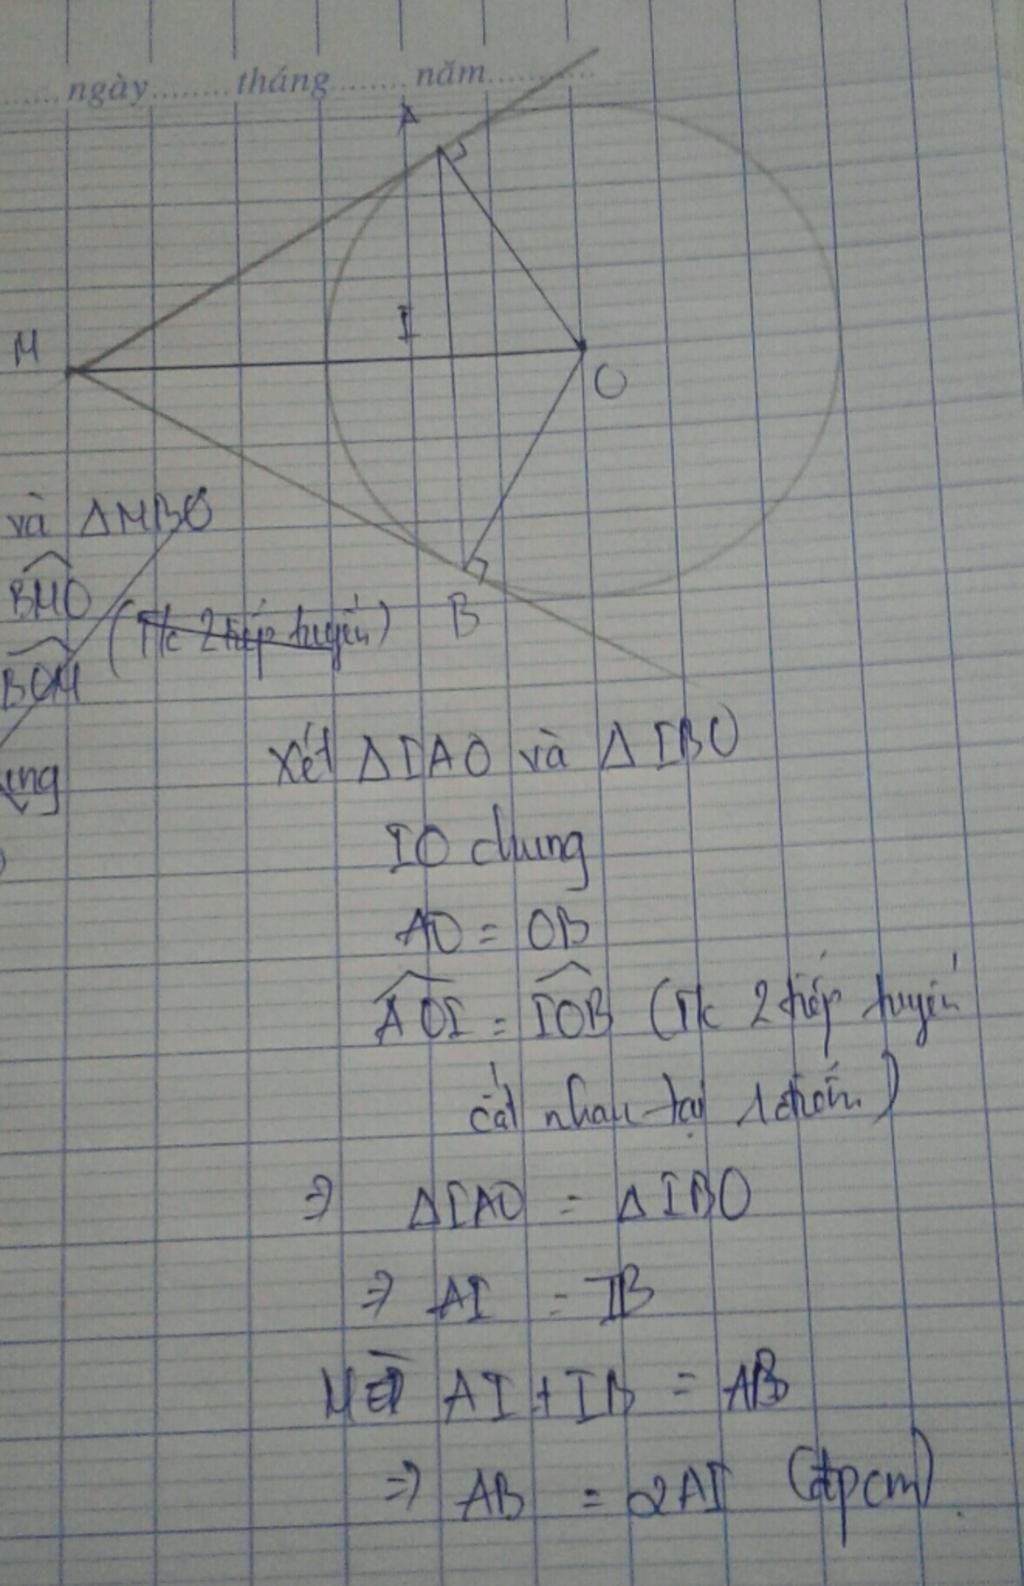 ngày........tháng.......năm............
A
I
M
O
và ΔMBO
BMO
B
(T/c 2 tiếp tuyến)
BOM
Xét ΔIAO và ΔIBO
IO chung
AO = OB
AOI = IOB (T/c 2 tiếp tuyến
cắt nhau tại 1 điểm)
⇒ ΔIAO = ΔIBO
⇒ AI = IB
Mà AI + IB = AB
⇒ AB = 2AI (đpcm)